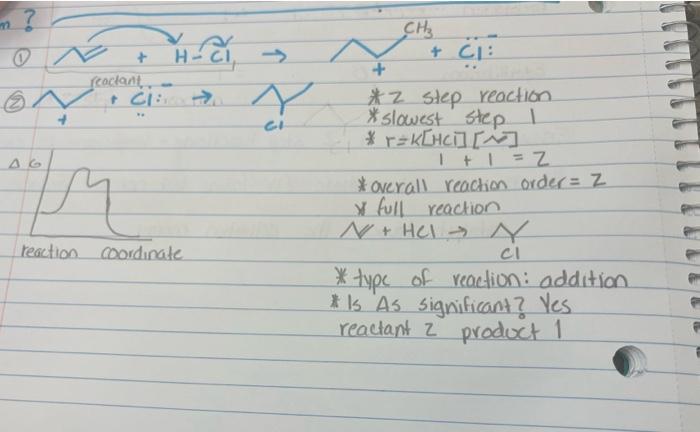 m?
① + H-Cl → CH₃ + + Cl:⁻
reactant
② + + Cl:⁻ → Cl
* 2 step reaction
* slowest step 1
* r=K[HCl][ ]
1 + 1 = 2
ΔG
* overall reaction order = 2
* full reaction
+ HCl →
Cl
reaction coordinate
* type of reaction: addition
* Is Δs significant? Yes
reactant 2 product 1